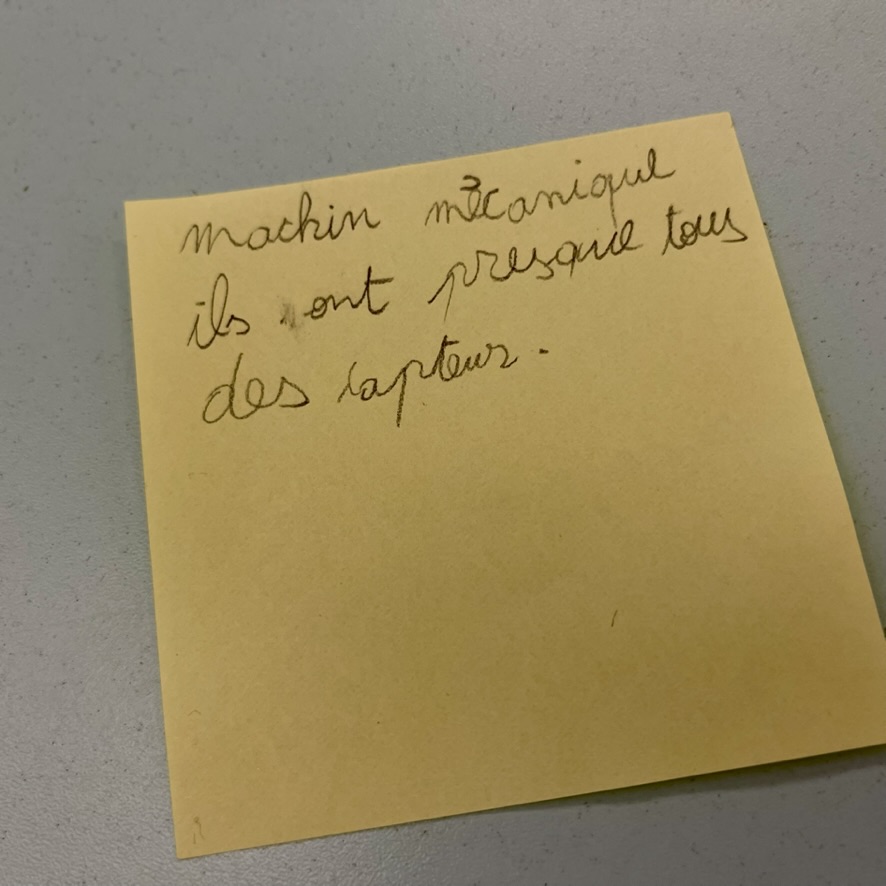 machin mécanique
ils ont presque tous
des capteur.